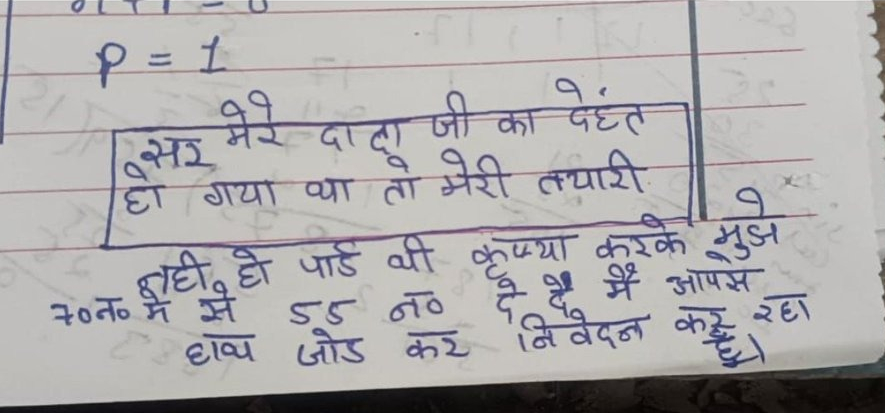 P = 1
सर मेरे दादा जी का देहंत
हो गया था तो मेरी तयारी
नही हो पाई थी कृप्या करके मुझे
70 न० मे से 55 न० दे दे मैं आपसे
हाथ जोड कर निवेदन कर रहा
हूं।